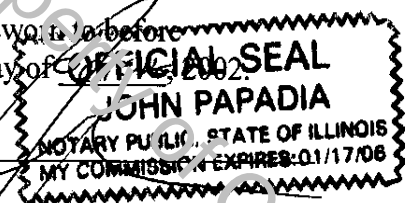 worn to before
OFFICIAL SEAL
y of , 2002.
JOHN PAPADIA
NOTARY PUBLIC, STATE OF ILLINOIS
MY COMMISSION EXPIRES:01/17/06